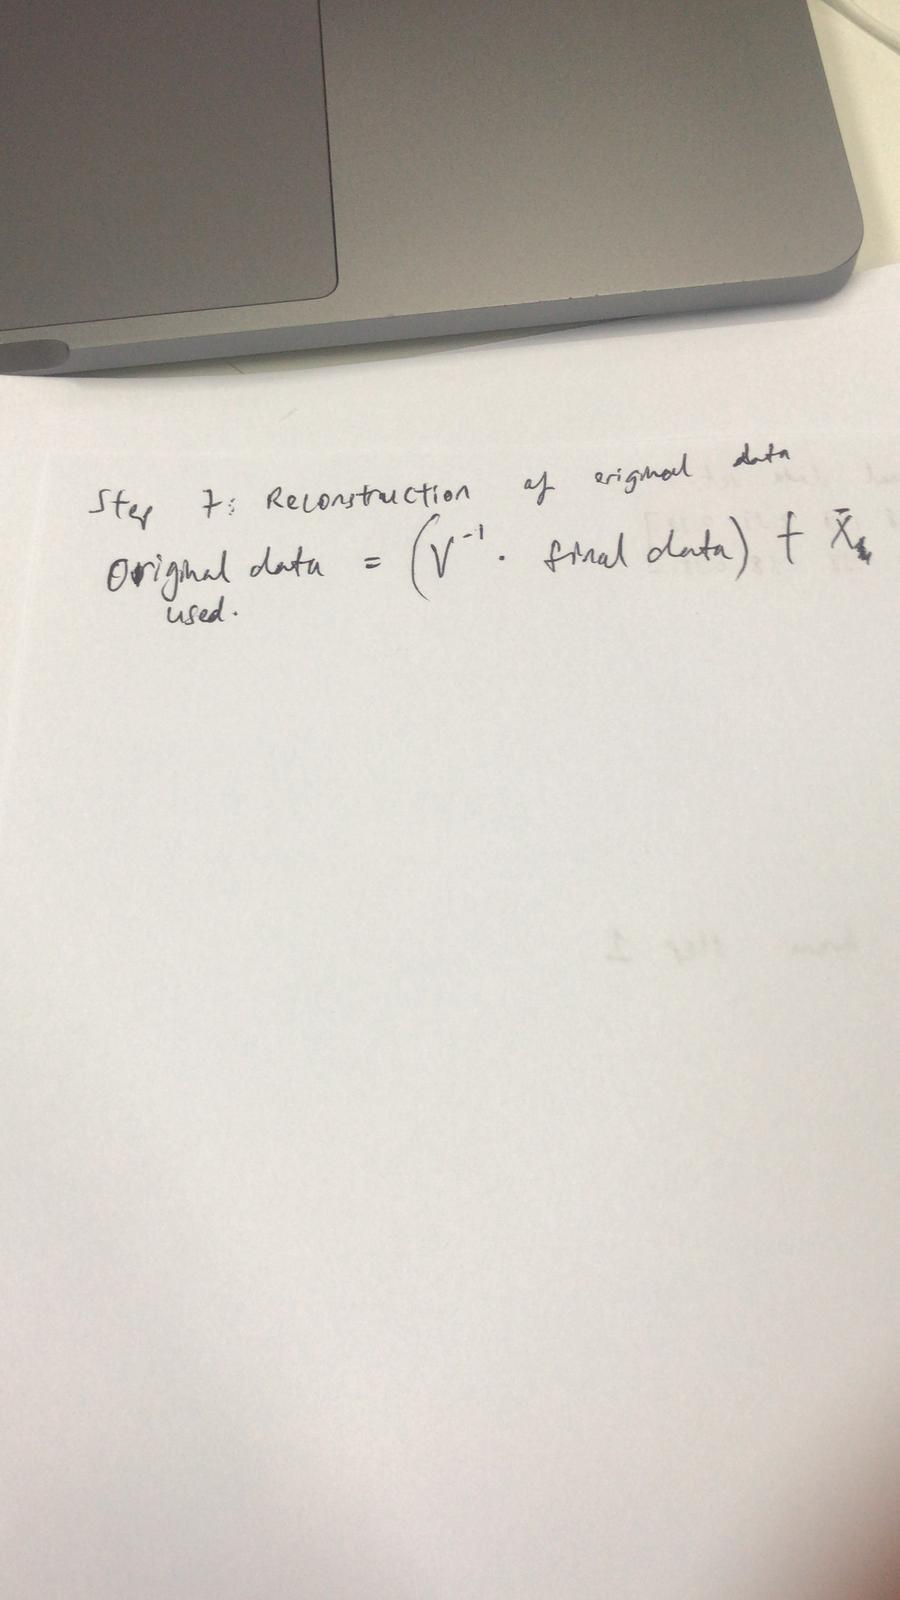 Step 7: Reconstruction of original data
Original data = (V⁻¹ · final data) + X̄
used.